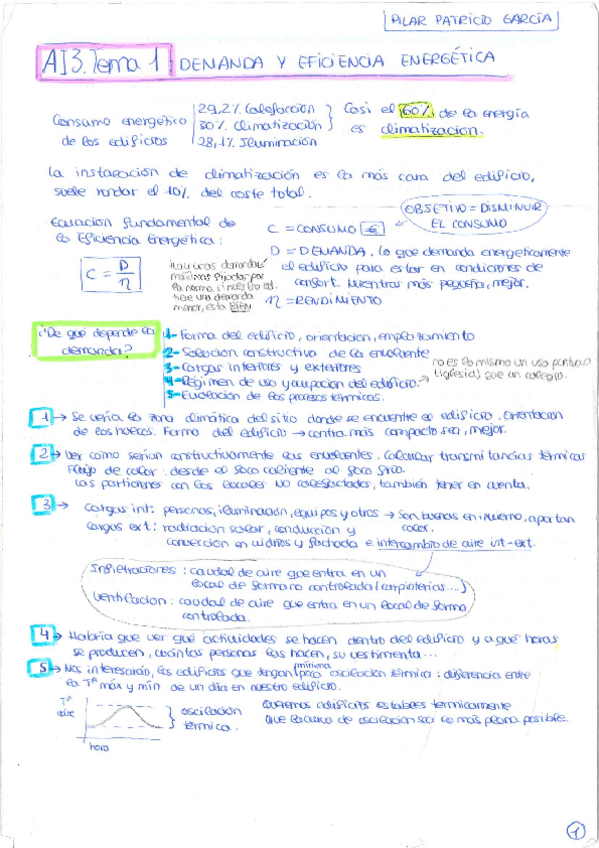 PILAR PATRICIO GARCÍA
AI3. Tema 1 DEMANDA Y EFICIENCIA ENERGÉTICA
Consumo energético de los edificios
29,2% Calefacción
30% Climatización
28,1% Iluminación
Casi el 60% de la energía
es climatización.
La instalación de climatización es la más cara del edificio,
suele rondar el 10% del coste total.
OBJETIVO = DISMINUIR
EL CONSUMO
Ecuación fundamental de
la Eficiencia Energética:
C = D / η
C = CONSUMO
D = DEMANDA. Lo que demanda energeticamente
el edificio para estar en condiciones de
confort. Mientras más pequeña, mejor.
η = RENDIMIENTO
Hay unas demandas
máximas fijadas por
la norma, si nuestro ed.
tiene una demanda
menor, está BIEN
¿De qué depende la
demanda?
1- Forma del edificio, orientación, emplazamiento
2- Solución constructiva de la envolvente
3- Cargas interiores y exteriores
4- Régimen de uso y ocupación del edificio. → no es lo mismo un uso puntual
(iglesia) que un colegio.
5- Evaluación de los procesos térmicos.
1 → Se vería la zona climática del sitio donde se encuentre el edificio. Orientación
de los huecos. Forma del edificio → contra más compacto sea, mejor.
2 → Ver como serían constructivamente las envolventes. Calcular transmitancias térmicas
Flujo de calor: desde el foco caliente al foco frío.
Las particiones con los locales no calefactados, también tener en cuenta.
3 → Cargas int: personas, iluminación, equipos y otros → Son buenas en invierno, aportan
calor.
Cargas ext: radiación solar, conducción y
convección en vidrios y fachada e intercambio de aire int-ext.
Infiltraciones: caudal de aire que entra en un
local de forma no controlada (carpinterías...)
Ventilación: caudal de aire que entra en un local de forma
controlada.
4 → Habría que ver qué actividades se hacen dentro del edificio y a qué horas
se producen, cuántas personas las hacen, su vestimenta...
5 → Nos interesarán, los edificios que tengan (mínima) poca oscilación térmica: diferencia entre
la Tª máx y mín de un día en nuestro edificio.
Tª
aire
hora
oscilación
térmica.
Queremos edificios estables termicamente
que la curva de oscilación sea lo más plana posible.
1